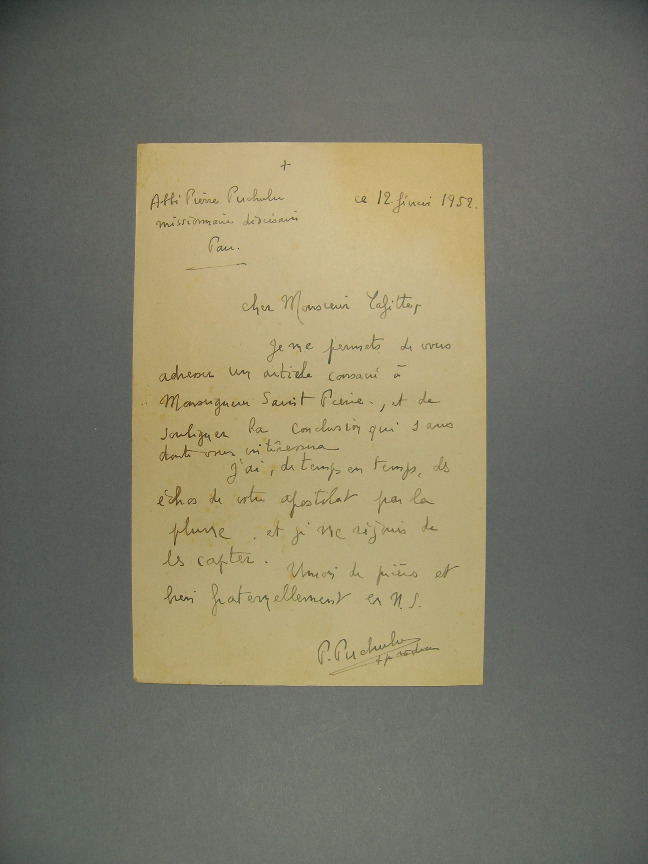 +
Abbé Pierre Puchulu
missionnaire diocésain
Pau.
ce 12 février 1952.
Cher Monsieur Lafitte,
Je me permets de vous
adresser un article consacré à
Monseigneur Saint Pierre., et de
souligner la conclusion qui sans
doute vous intéressera
J'ai, de temps en temps, des
échos de votre apostolat par la
plume, et je me réjouis de
les capter.
Union de prières et
bien fraternellement en N. S.
P. Puchulu